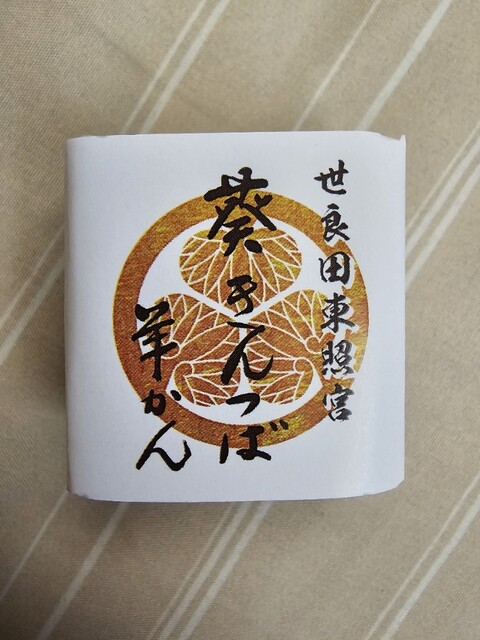 世良田東照宮
葵きんつば
羊かん